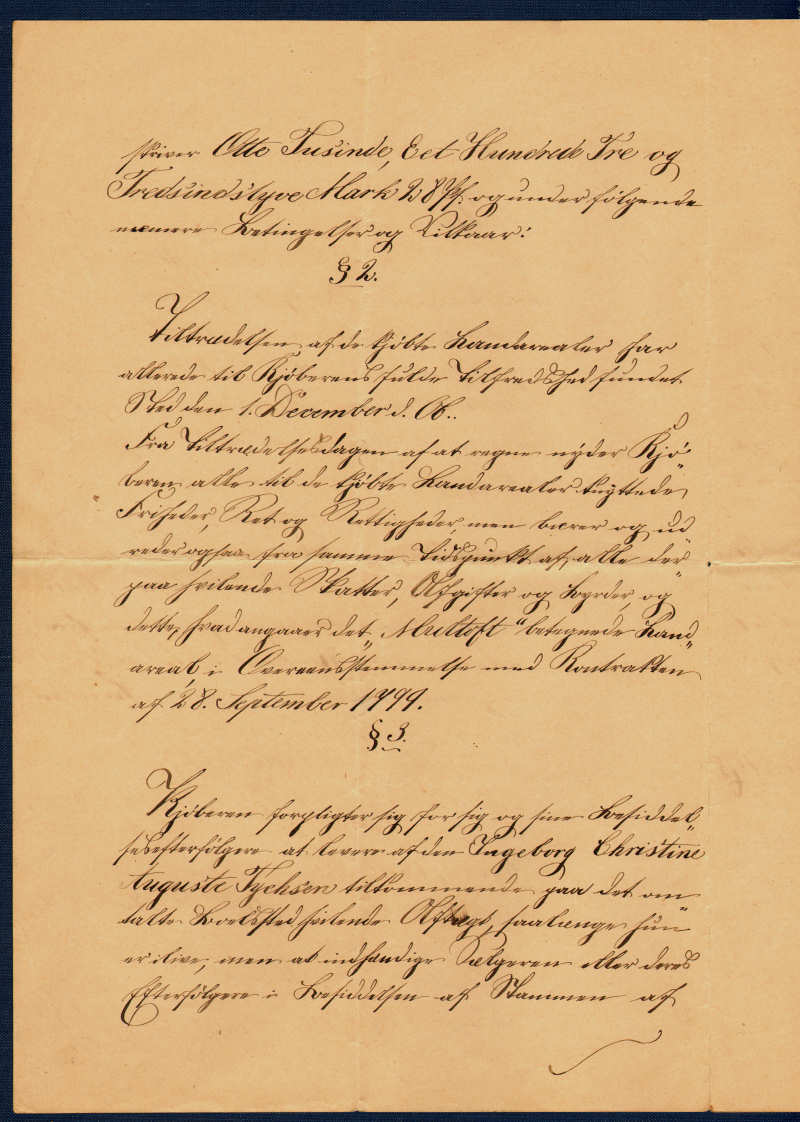 skriver Otte Tusinde, Eet Hundrede Tre og
Tredsindstyve Mark 28 Pf. og under følgende
nærmere Betingelser og Vilkaar:
§ 2.
Tiltrædelsen af de kjøbte Landarealer har
allerede til Kjøberens fulde Tilfredshed fundet
Sted den 1. December d. Ob..
Fra Tiltrædelsesdagen af at regne nyder Kjø-
beren alle til de kjøbte Landarealer knyttede
Friheder, Ret og Rettigheder, men bærer og ud-
reder ogsaa fra samme Tidspunkt af, alle der-
paa hvilende Skatter, Afgifter og Byrder, og
dette, hvad angaaer det „Multoft“ betegnede Land„
areal, i Overeensstemmelse med Kontrakten
af 28. September 1999.
§ 3.
Kjøberen forpligter sig for sig og sine Besiddel„
sesefterfølgere at levere af den Ingeborg Christine
Auguste Tychsen tilkommende paa det om-
talte Boelssted hvilende Aftægt, saalænge hun
er ilive, men at indhændige Sælgeren eller deres
Efterfølgere i Besiddelsen af Stammen af